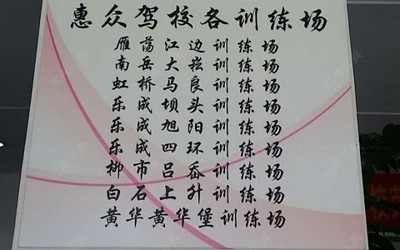 惠众驾校各训练场
雁荡江边训练场
南岳大崧训练场
虹桥马良训练场
乐成坝头训练场
乐成旭阳训练场
乐成四环训练场
柳市吕岙训练场
白石上升训练场
黄华黄华堡训练场